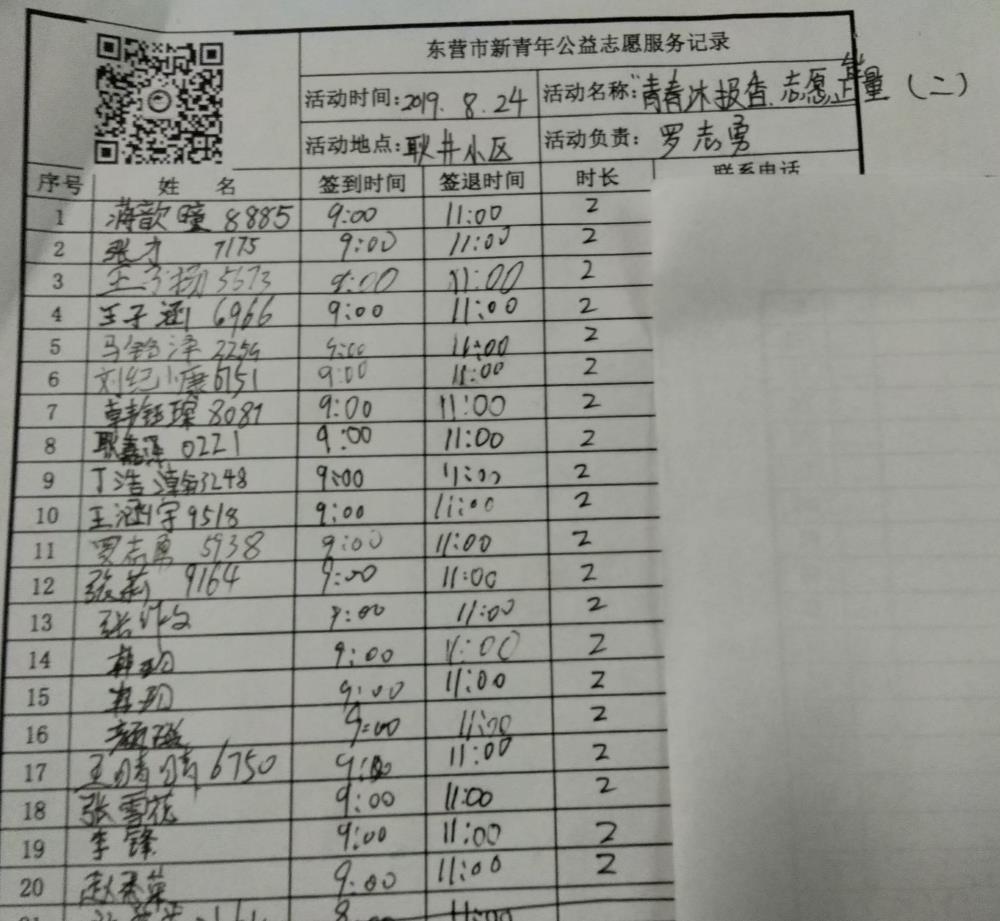 东营市新青年公益志愿服务记录
活动时间:2019.8.24 活动名称:"青春沐报告.志愿正能量(二)
活动地点:耿井小区 活动负责:罗志勇
序号 姓名 签到时间 签退时间 时长 联系电话
1 蒋歆瞳 8885 9:00 11:00 2
2 张才 7175 9:00 11:00 2
3 王子扬 5673 9:00 11:00 2
4 王子涵 6966 9:00 11:00 2
5 马钰泽 9:00 11:00 2
6 刘纪小康 6751 9:00 11:00 2
7 韩钰璨 8081 9:00 11:00 2
8 耿嘉 0221 9:00 11:00 2
9 丁浩 3248 9:00 11:00 2
10 王涵宇 9518 9:00 11:00 2
11 罗志勇 5938 9:00 11:00 2
12 张莉 9164 9:00 11:00 2
13 张 9:00 11:00 2
14 9:00 11:00 2
15 9:00 11:00 2
16 颜 9:00 11:00 2
17 王晴晴 6750 9:00 11:00 2
18 张雪花 9:00 11:00 2
19 李锋 9:00 11:00 2
20 赵秀菊 9:00 11:00 2